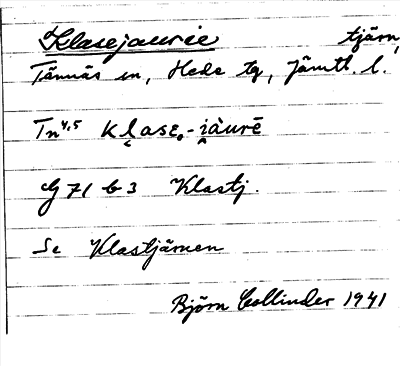 Klasejaurie tjärn,
Tännäs sn, Hede tg, Jämtl. l.
Tn4,5 kḷasε̥-i̯àurē
G 71 b 3 Klastj.
Se Klastjärnen
Björn Collinder 1941